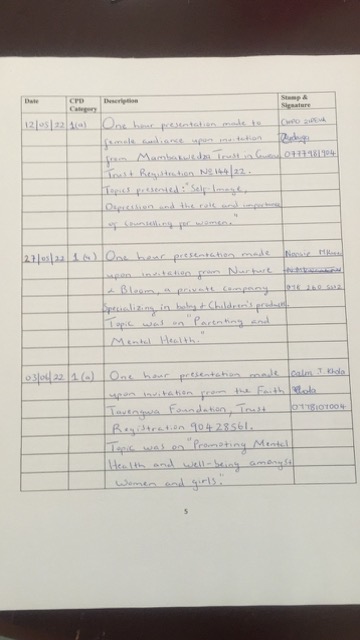 Date CPD Category Description Stamp & Signature
12/05/22 1(a) One hour presentation made to
female audience upon invitation
from Mambakwedza Trust in Gweru 0777981904
Trust Registration No 144/22.
Topics presented: "Self-Image,
Depression and the role and importance
of counselling for women."
27/05/22 1(a) One hour presentation made
upon invitation from Nurture
& Bloom, a private company
Specializing in baby & Children's products.
Topic was on "Parenting and
Mental Health."
03/06/22 1(a) One hour presentation made
upon invitation from the Faith
Tavengwa Foundation, Trust 0778107004
Registration 90428561.
Topic was on "Promoting Mental
Health and well-being amongst
women and girls."
5